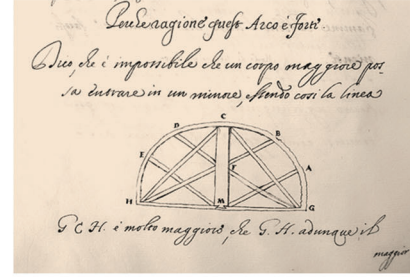 Perche ragione quest Arco è forti.
Dico, che è impossibile che un corpo maggiore pos-
sa entrare in un minore, essendo cosi la linea
C
D B
E F A
H M G
G C H. è molto maggiore, che G. H. adunque il
maggior